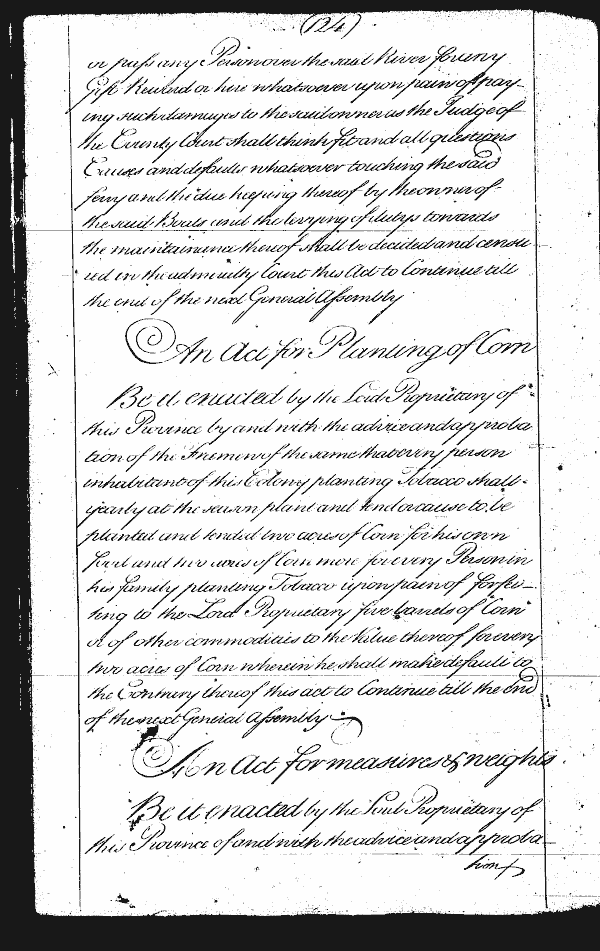 (124)
or pass any Person over the said River for any
Gift Reward or hire whatsoever upon pain of pay-
ing such damages to the said owner as the Judge of
the County Court shall think fit and all questions
Causes and defaults whatsoever touching the said
ferry and the due keeping thereof by the owner of
the said Boats and the levying of dutys towards
the maintainance thereof shall be decided and censu
red in the admiralty Court this Act to Continue till
the end of the next General Assembly
An Act for Planting of Corn
Be it enacted by the Lord Proprietary of
this Province by and with the advice and approba
tion of the Freemen of the same that every person
inhabitant of this Colony planting Tobacco shall
yearly at the season plant and tend or cause to be
planted and tended two acres of Corn for his own
food and two acres of Corn more for every Person in
his family planting Tobacco upon pain of forfei-
ting to the Lord Proprietary five barrels of Corn
or of other commodities to the value thereof for every
two acres of Corn wherein he shall make default to
the Contrary thereof this act to Continue till the End
of the next General Assembly
An Act for measures & weights
Be it enacted by the Lord Proprietary of
this Province of and with the advice and approba-
tion